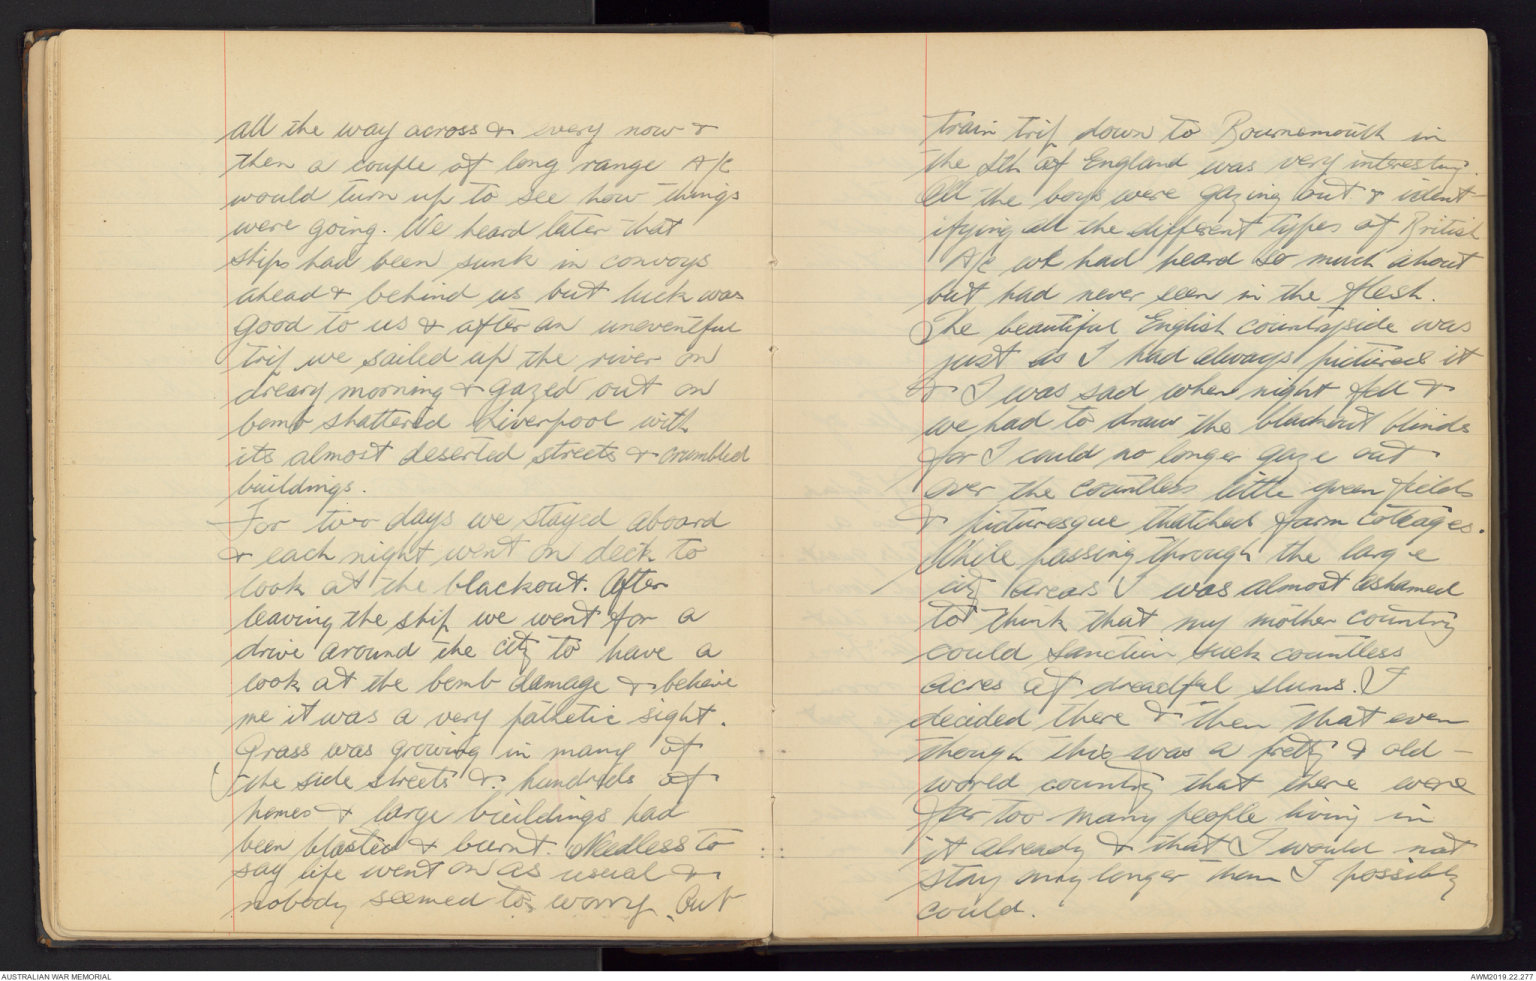 all the way across & every now &
then a couple of long range A/C
would turn up to see how things
were going. We heard later that
ships had been sunk in convoys
ahead & behind us but luck was
good to us & after an uneventful
trip we sailed up the river on
dreary morning & gazed out on
bomb shattered Liverpool with
its almost deserted streets & crumbled
buildings.
For two days we stayed aboard
& each night went on deck to
look at the blackout. After
leaving the ship we went for a
drive around the city to have a
look at the bomb damage & believe
me it was a very pathetic sight.
Grass was growing in many of
the side streets & hundreds of
homes & large buildings had
been blasted & burnt. Needless to
say life went on as usual &
nobody seemed to worry. Our
train trip down to Bournemouth in
the Sth of England was very interesting.
All the boys were gazing out & ident-
ifying all the different types of British
A/C we had heard so much about
but had never seen in the flesh.
The beautiful English countryside was
just as I had always pictured it
& I was sad when night fell &
we had to draw the blackout blinds
for I could no longer gaze out
over the countless little green fields
& picturesque thatched farm cottages.
While passing through the large
city areas I was almost ashamed
to think that my mother country
could sanction such countless
acres of dreadful slums. I
decided there & then that even
though this was a pretty & old-
world country that there were
far too many people living in
it already & that I would not
stay any longer than I possibly
could.
AUSTRALIAN WAR MEMORIAL
AWM2019.22.277